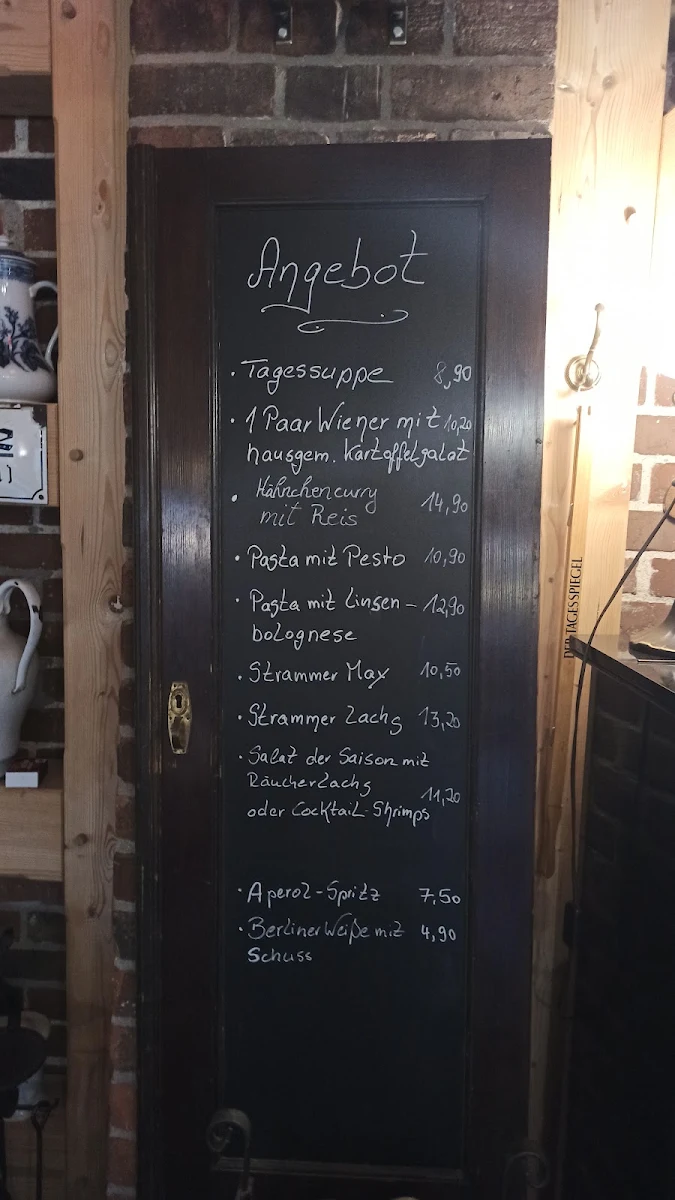 Angebot
· Tagessuppe 8,90
· 1 Paar Wiener mit 10,20
hausgem. Kartoffelsalat
· Hähnchencurry
mit Reis 14,90
· Pasta mit Pesto 10,90
· Pasta mit Linsen- 12,90
bolognese
· Strammer Max 10,50
· Strammer Lachs 13,20
· Salat der Saison mit
Räucherlachs
oder Cocktail-Shrimps 11,20
· Aperol-Spritz 7,50
· Berliner Weiße mit 4,90
Schuss
DER TAGESSPIEGEL